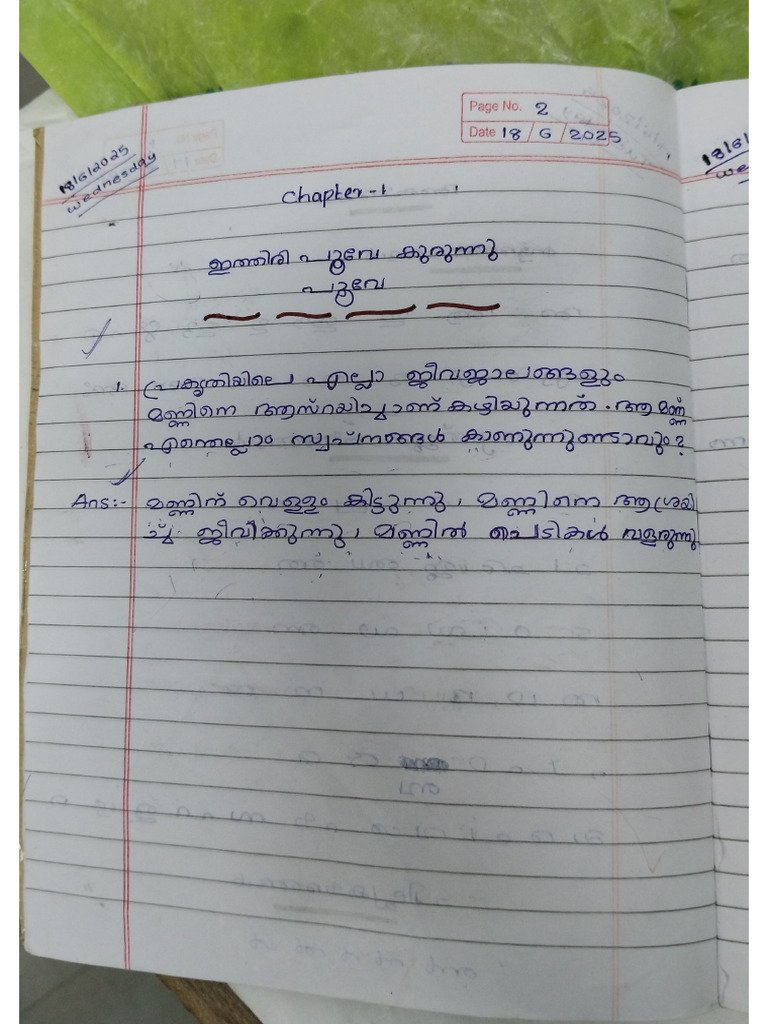 Page No. 2
Date 18/6/2025
18/6/2025
Wednesday
Chapter-1
ഇത്തിരി പൂവേ കുരുന്നു
പൂവേ
1. പ്രകൃതിയിലെ എല്ലാ ജീവജാലങ്ങളും
മണ്ണിനെ ആസ്രയിച്ചാണ് കഴിയുന്നത്. ആ മണ്ണ്
എന്തെല്ലാം സ്വപ്നങ്ങൾ കാണുന്നുണ്ടാവും?
Ans:- മണ്ണിന് വെള്ളം കിട്ടുന്നു, മണ്ണിനെ ആശ്രയി
ച്ച് ജീവിക്കുന്നു, മണ്ണിൽ ചെടികൾ വളരുന്നു
18/6/
We